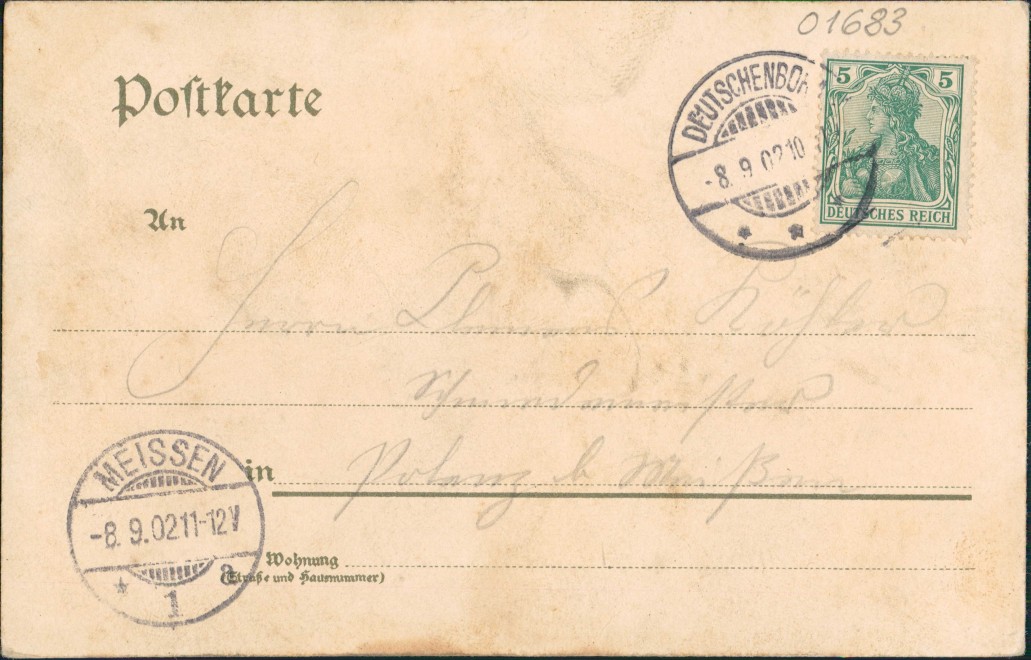 01683
Postkarte
DEUTSCHENBOR
-8.9.02 10
5 5
DEUTSCHES REICH
An
Herrn Clemens Köhler
Schmiedemeister
in Polenz b Meißen
MEISSEN
-8.9.02 11-12V
* 1 a
Wohnung
(Straße und Hausnummer)